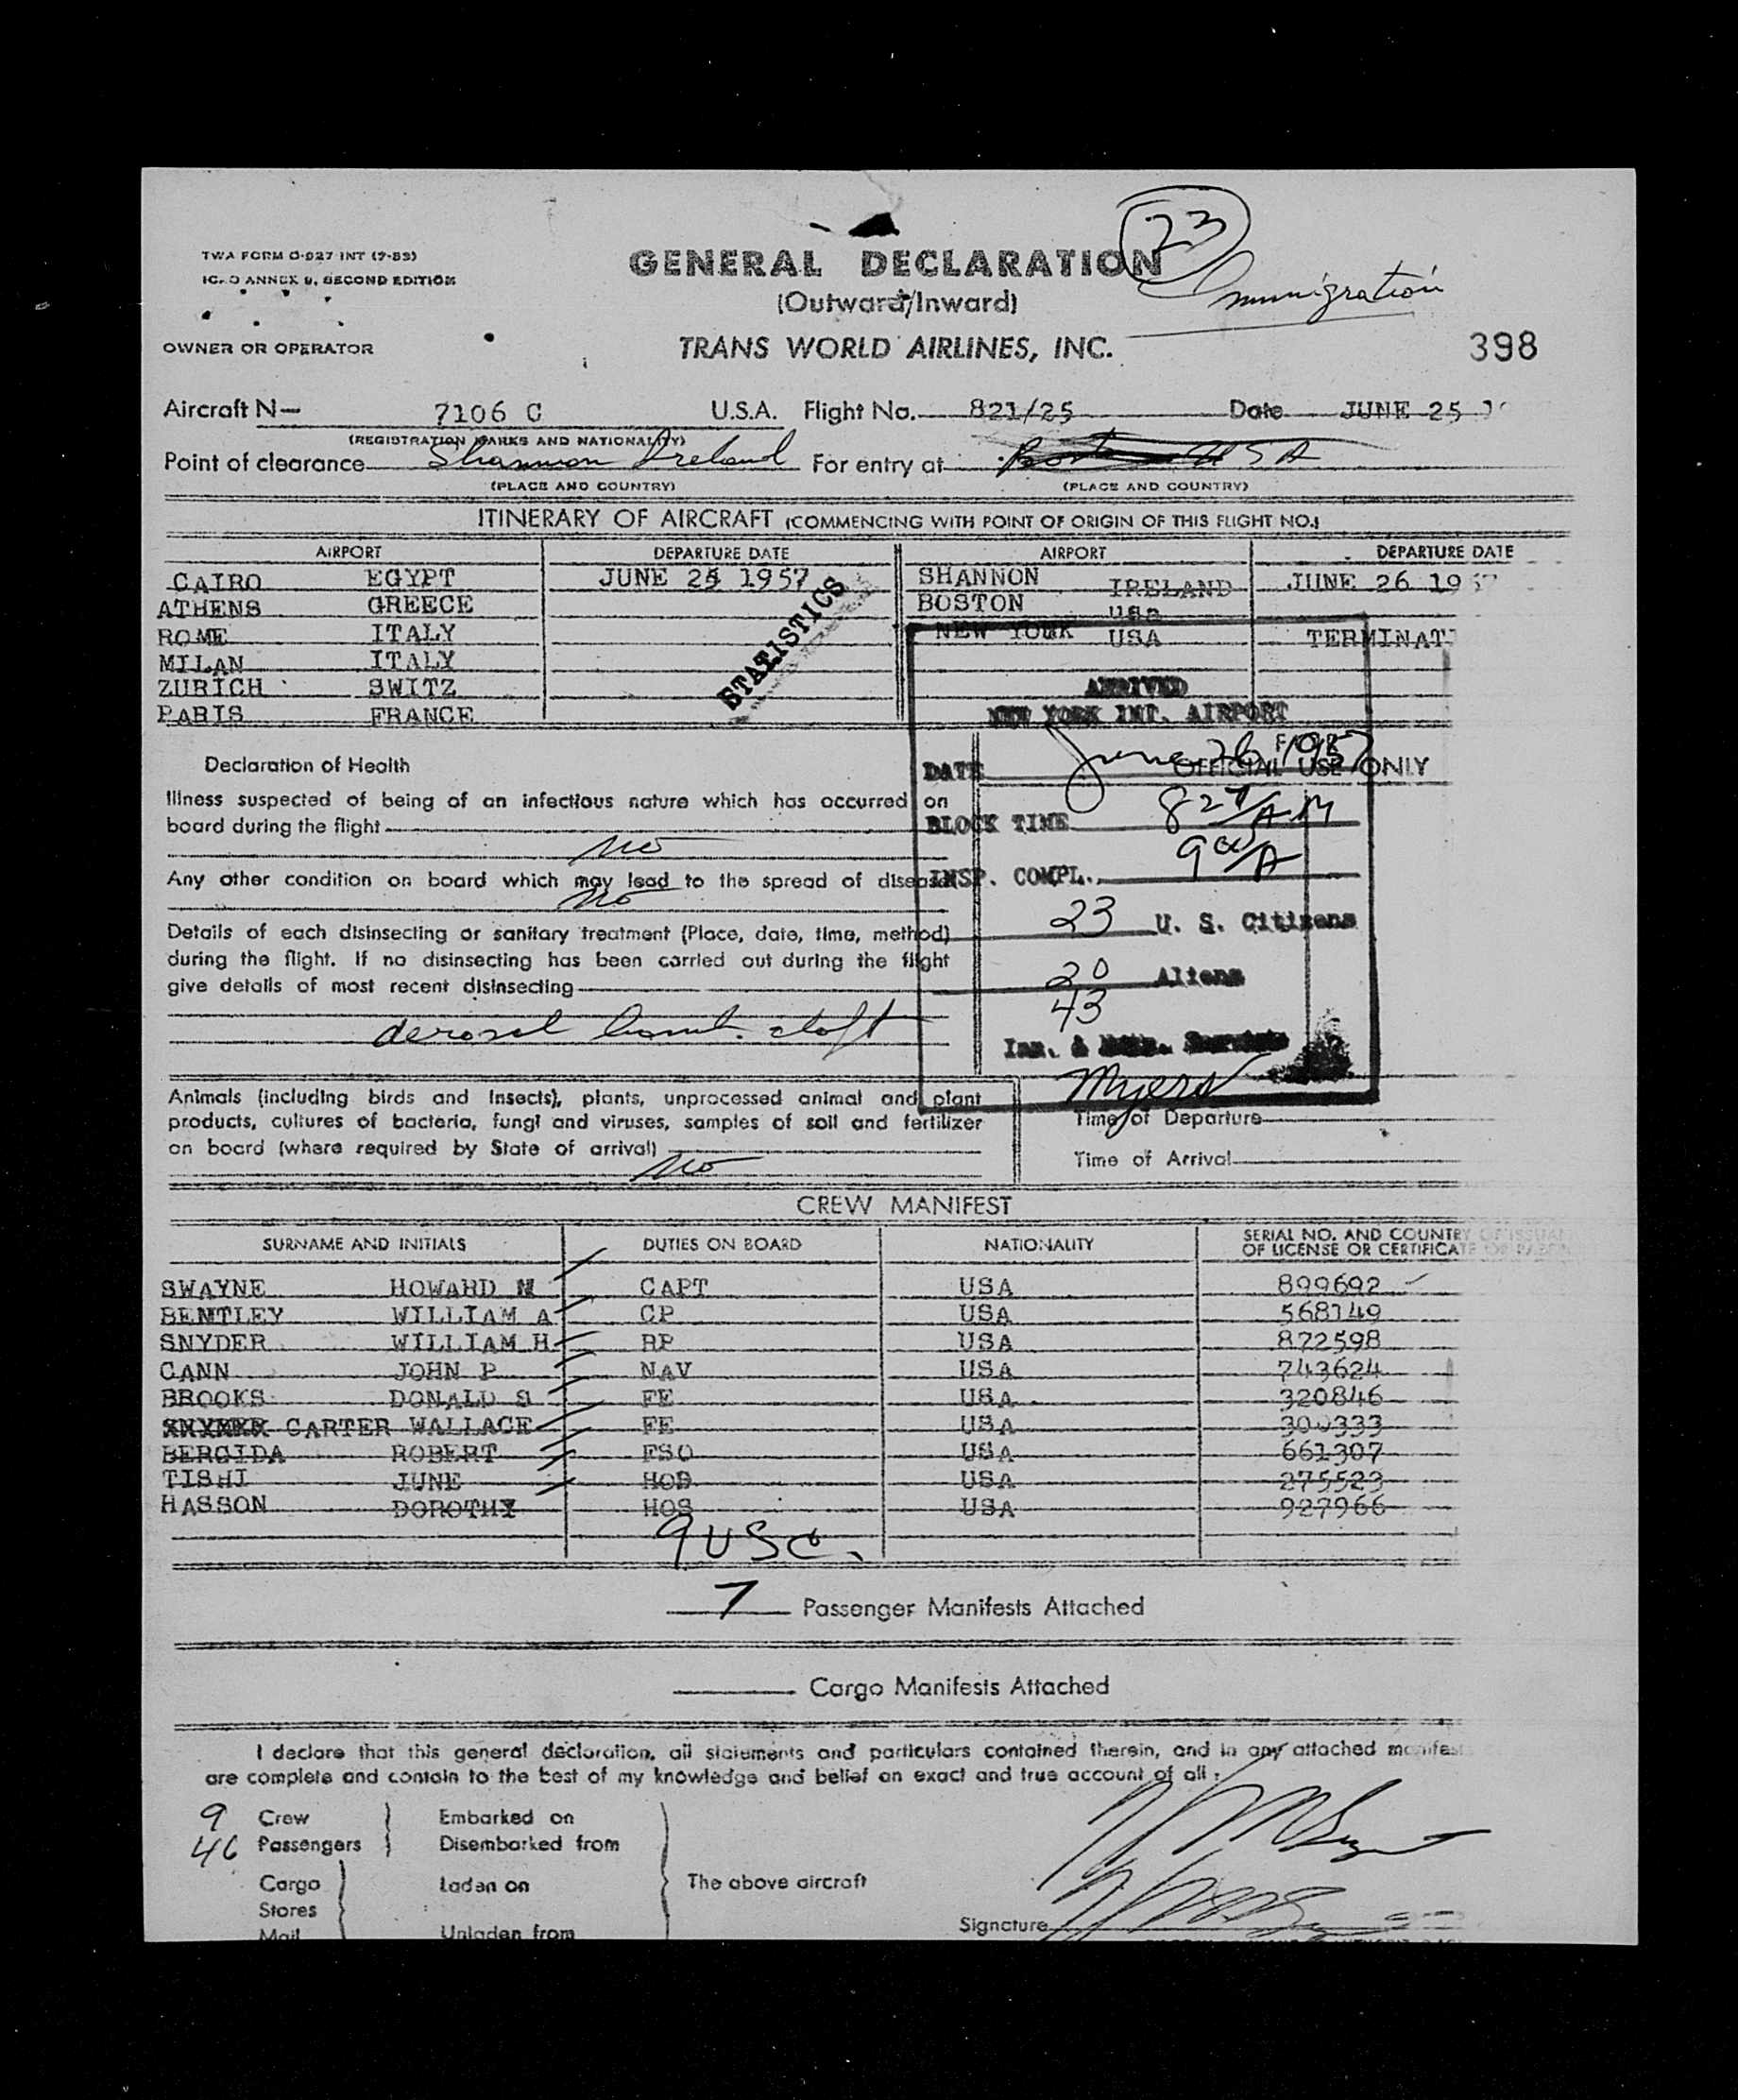 23
Immigration
TWA FORM O-927 INT (7-53)
ANNEX 9, SECOND EDITION
GENERAL DECLARATION
(Outward/Inward)
OWNER OR OPERATOR
TRANS WORLD AIRLINES, INC.
398
Aircraft N— 7106 C U.S.A. Flight No. 821/25 Date JUNE 25
(REGISTRATION MARKS AND NATIONALITY)
Point of clearance Shannon Ireland For entry at Boston USA
(PLACE AND COUNTRY) (PLACE AND COUNTRY)
ITINERARY OF AIRCRAFT (COMMENCING WITH POINT OF ORIGIN OF THIS FLIGHT NO.)
AIRPORT DEPARTURE DATE AIRPORT DEPARTURE DATE
CAIRO EGYPT JUNE 25 1957 SHANNON IRELAND JUNE 26 19
ATHENS GREECE BOSTON USA
ROME ITALY NEW YORK USA TERMINAT
MILAN ITALY
ZURICH SWITZ
PARIS FRANCE
STATISTICS
ARRIVED
NEW YORK INT. AIRPORT
Declaration of Health
FOR
OFFICIAL USE ONLY
DATE June 26 1957
Illness suspected of being of an infectious nature which has occurred on
board during the flight
no
BLOCK TIME 8 27/AM
Any other condition on board which may lead to the spread of disease
no
INSP. COMPL. 9 00/A
Details of each disinsecting or sanitary treatment (Place, date, time, method)
during the flight. If no disinsecting has been carried out during the flight
give details of most recent disinsecting
aerosol bomb
23 U. S. Citizens
20 Aliens
43
Imm. &
Myers
Animals (including birds and insects), plants, unprocessed animal and plant
products, cultures of bacteria, fungi and viruses, samples of soil and fertilizer
on board (where required by State of arrival)
no
Time of Departure
Time of Arrival
CREW MANIFEST
SURNAME AND INITIALS DUTIES ON BOARD NATIONALITY SERIAL NO. AND COUNTRY OF ISSUE
OF LICENSE OR CERTIFICATE
SWAYNE HOWARD M CAPT USA 899692
BENTLEY WILLIAM A CP USA 568149
SNYDER WILLIAM H RP USA 872598
CANN JOHN P NAV USA 743624
BROOKS DONALD S FE USA 320846
CARTER WALLACE FE USA 300333
BERGIDA ROBERT FSO USA 661307
TISHI JUNE HOS USA 275523
HASSON DOROTHY HOS USA 927966
9 USC.
7 Passenger Manifests Attached
Cargo Manifests Attached
I declare that this general declaration, all statements and particulars contained therein, and in any attached manifest
are complete and contain to the best of my knowledge and belief an exact and true account of all :
9 Crew Embarked on
46 Passengers Disembarked from
Cargo Laden on The above aircraft
Stores
Mail Unladen from
Signature